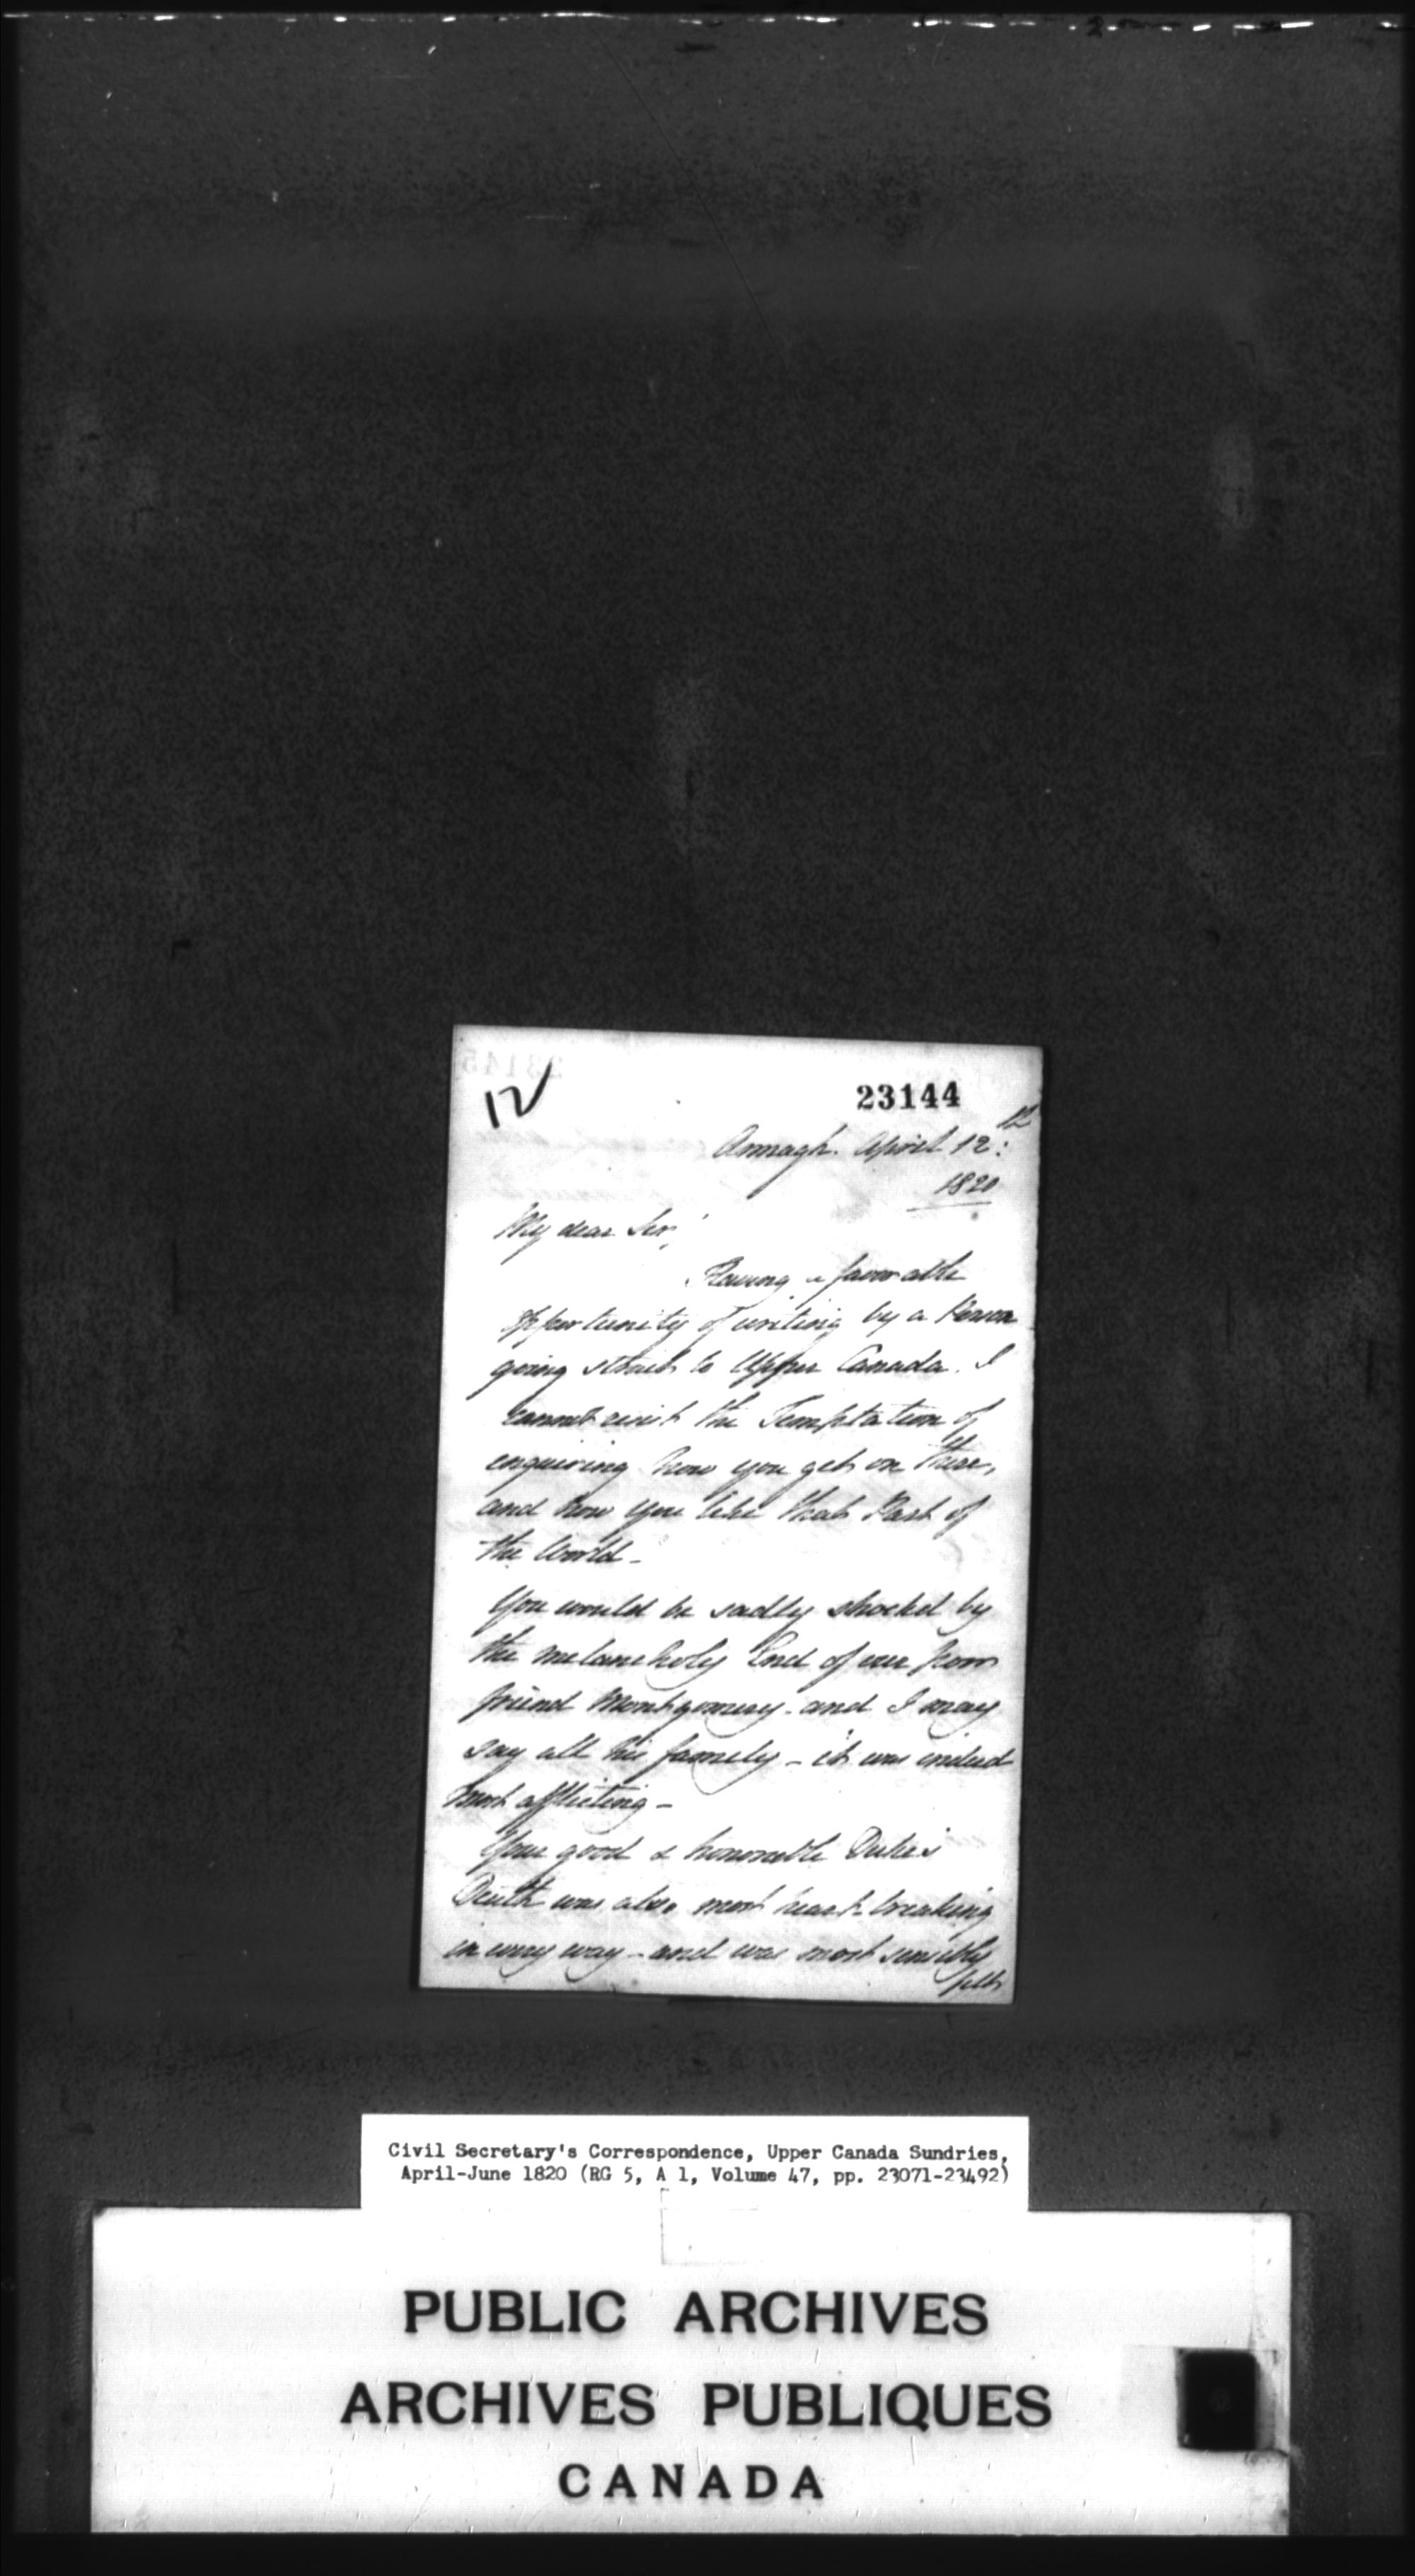 12
23144
Armagh. April 12:th
1820
My dear Sir,
Having a favorable
opportunity of writing by a Person
going strait to Upper Canada. I
cannot resist the Temptation of
enquiring how you get on there,
and how you like that Part of
the World -
You would be sadly shocked by
the melancholy End of our poor
friend Montgomery - and I may
say all his family - it was indeed
most afflicting -
Your good & honorable Duke's
Death was also most heart-breaking
in every way - and was most sensibly
felt
Civil Secretary's Correspondence, Upper Canada Sundries,
April-June 1820 (RG 5, A 1, Volume 47, pp. 23071-23492)
PUBLIC ARCHIVES
ARCHIVES PUBLIQUES
CANADA